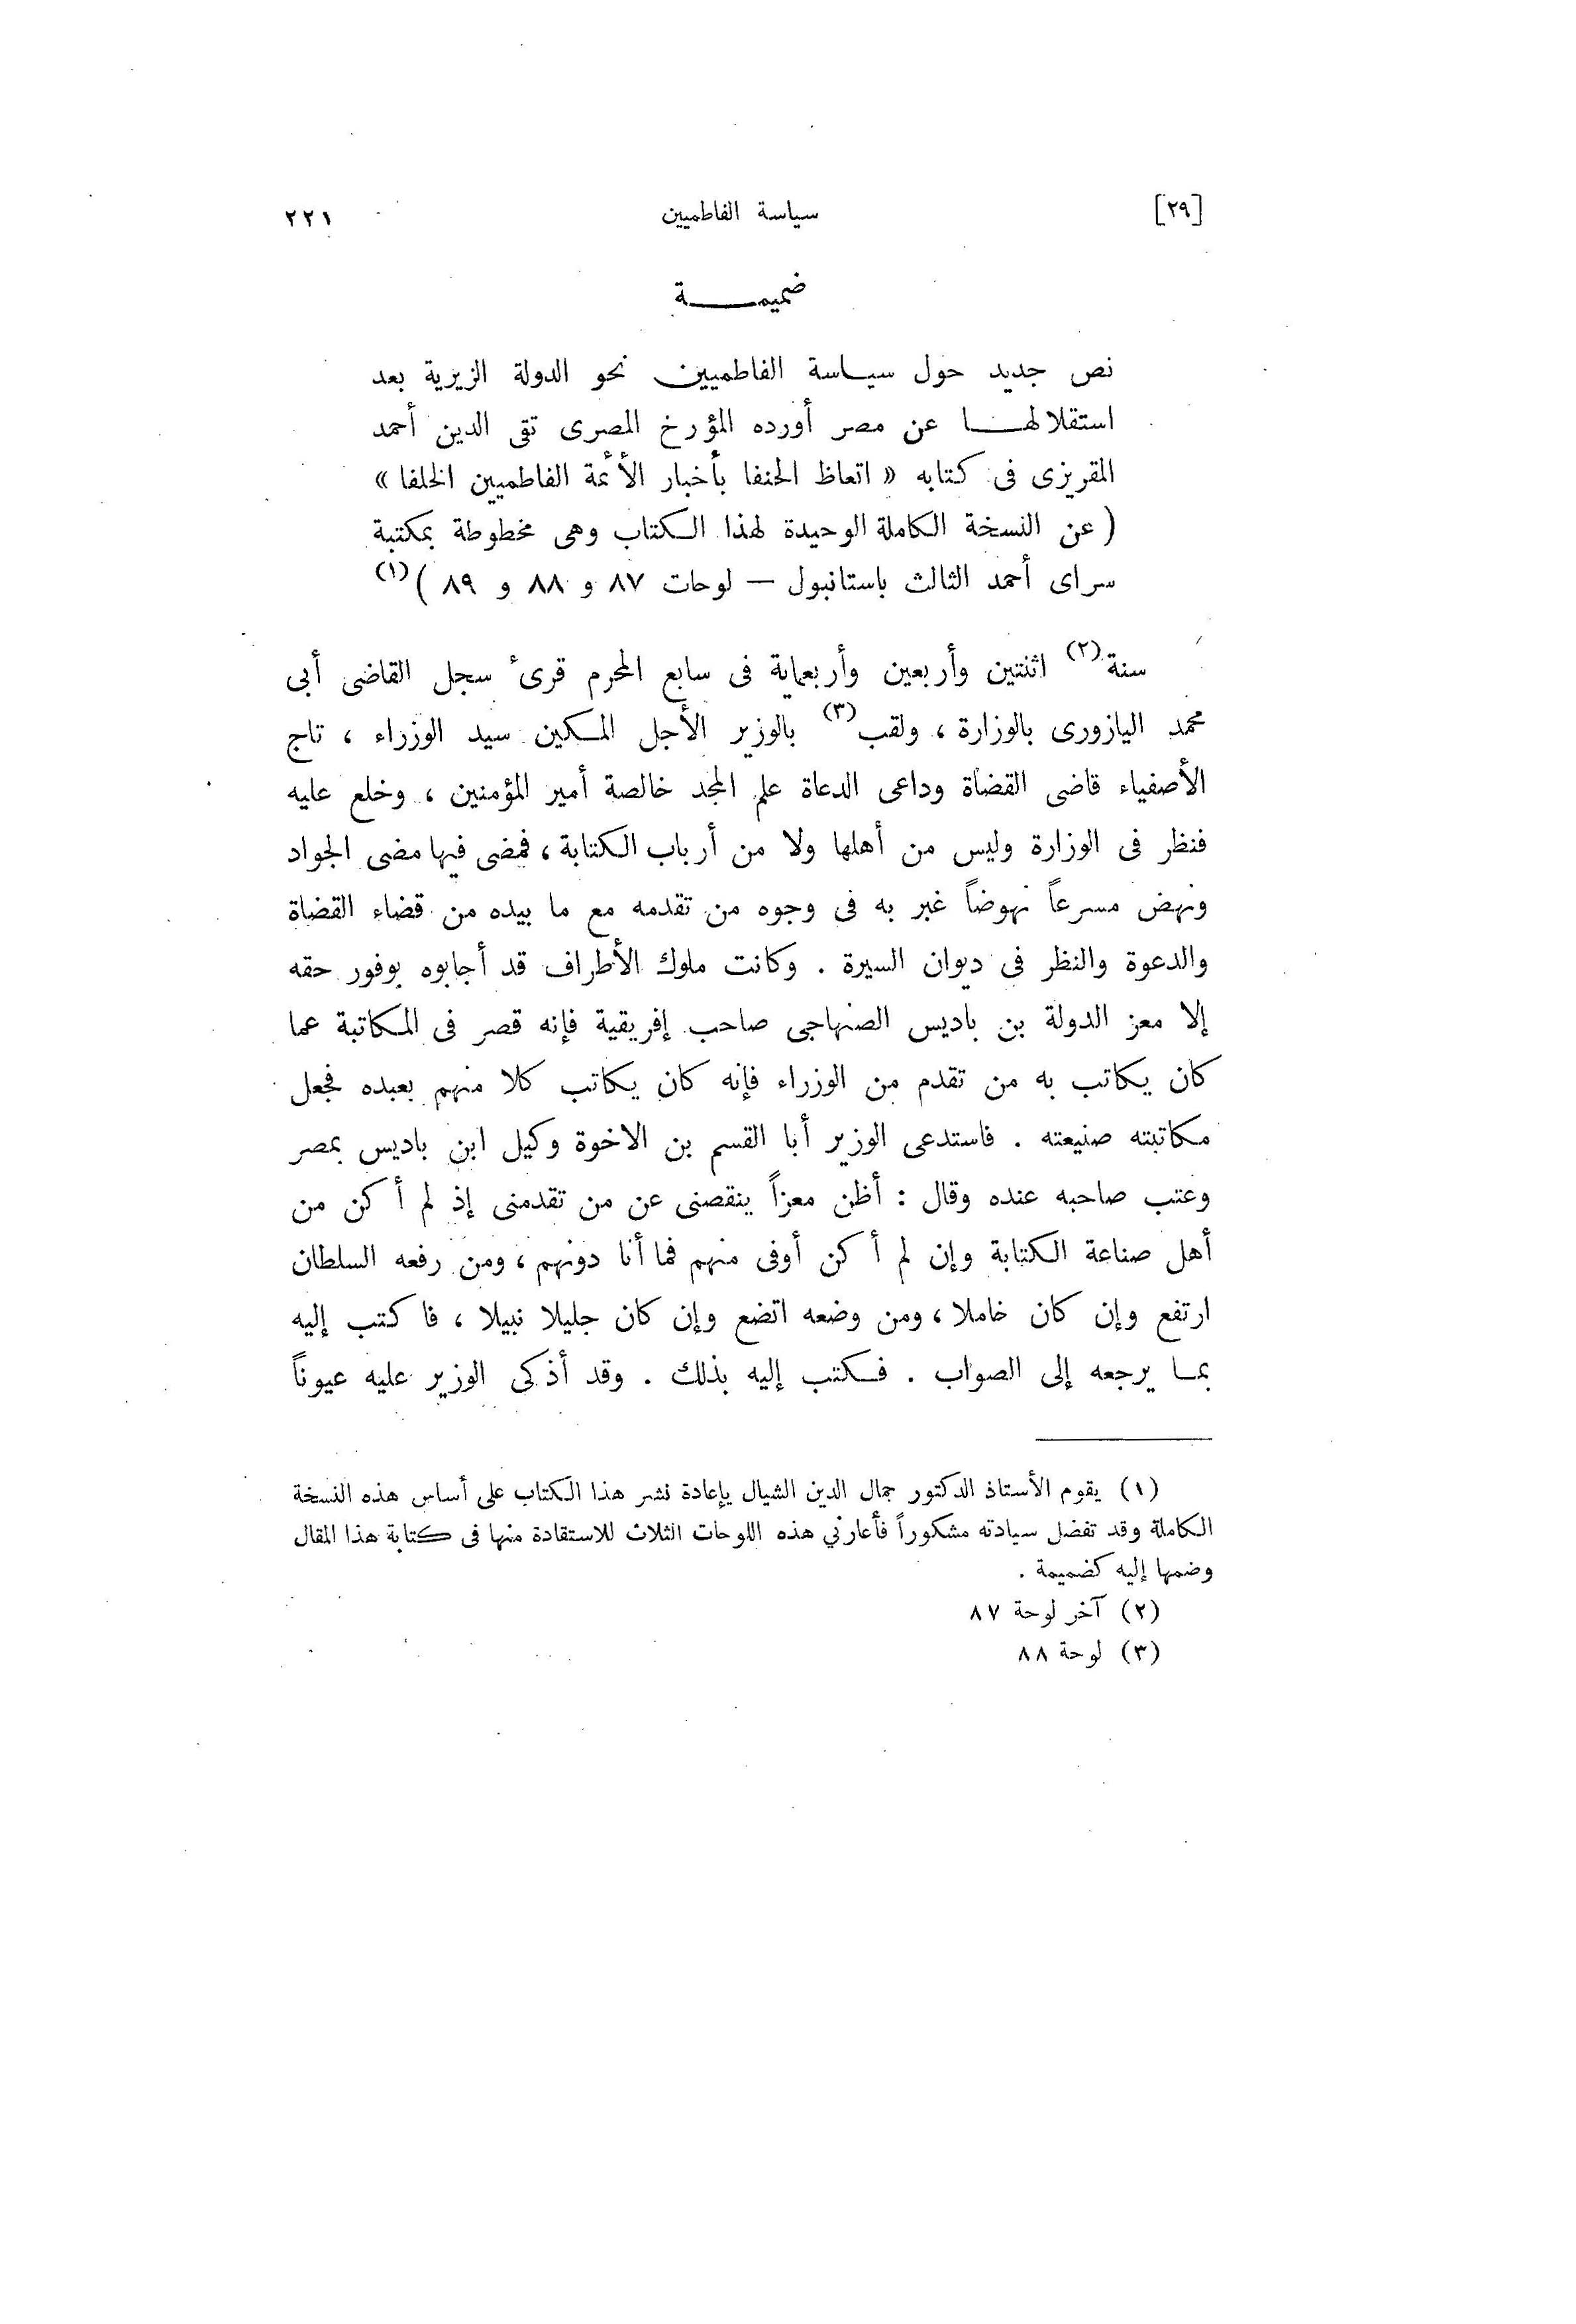 [٢٩] سياسة الفاطميين ٢٢١
ضميمـــــة
نص جديد حول سيـاسة الفاطميين نحو الدولة الزيرية بعد
استقلالهـــا عن مصر أورده المؤرخ المصرى تقى الدين أحمد
المقريزى فى كتابه « اتعاظ الحنفا بأخبار الأئمة الفاطميين الخلفا »
( عن النسخة الكاملة الوحيدة لهذا الـكتاب وهى مخطوطة بمكتبة
سراى أحمد الثالث باستانبول — لوحات ٨٧ و ٨٨ و ٨٩ ) (١)
سنة (٢) اثنتين وأربعين وأربعماية فى سابع المحرم قرىء سجل القاضى أبى
محمد اليازورى بالوزارة ، ولقب (٣) بالوزير الأجل المـكين سيد الوزراء ، تاج
الأصفياء قاضى القضاة وداعى الدعاة علم المجد خالصة أمير المؤمنين ، وخلع عليه
فنظر فى الوزارة وليس من أهلها ولا من أرباب الـكتابة ، فمضى فيها مضى الجواد
ونهض مسرعاً نهوضاً غبر به فى وجوه من تقدمه مع ما بيده من قضاء القضاة
والدعوة والنظر فى ديوان السيرة . وكانت ملوك الأطراف قد أجابوه بوفور حقه
إلا معز الدولة بن باديس الصنهاجى صاحب إفريقية فإنه قصر فى المـكاتبة عما
كان يكاتب به من تقدم من الوزراء فإنه كان يكاتب كلا منهم بعبده فجعل
مكاتبته صنيعته . فاستدعى الوزير أبا القسم بن الاخوة وكيل ابن باديس بمصر
وعتب صاحبه عنده وقال : أظن معزاً ينقصنى عن من تقدمنى إذ لم أكن من
أهل صناعة الـكتابة وإن لم أكن أوفى منهم فما أنا دونهم ، ومن رفعه السلطان
ارتفع وإن كان خاملا ، ومن وضعه اتضع وإن كان جليلا نبيلا ، فاكتب إليه
بمـا يرجعه إلى الصواب . فـكتب إليه بذلك . وقد أذكى الوزير عليه عيوناً
(١) يقوم الأستاذ الدكتور جمال الدين الشيال بإعادة نشر هذا الـكتاب على أساس هذه النسخة
الـكاملة وقد تفضل سيادته مشكوراً فأعارني هذه اللوحات الثلاث للاستفادة منها فى كتابة هذا المقال
وضمها إليه كضميمة .
(٢) آخر لوحة ٨٧
(٣) لوحة ٨٨